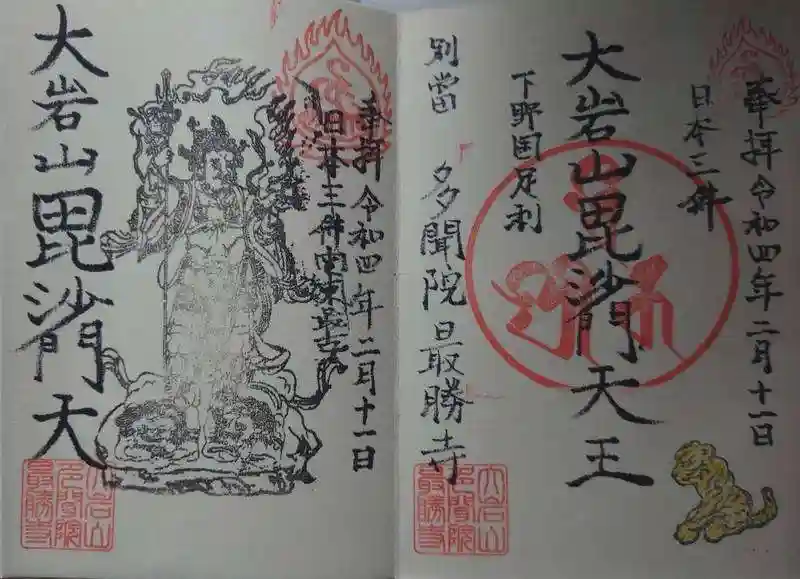 奉拝 令和四年二月十一日
日本三体
大岩山毘沙門天王
下野国足利
別當 多聞院最勝寺
大岩山
多聞院
最勝寺
奉拝 令和四年二月十一日
大岩山毘沙門天
大岩山
多聞院
最勝寺